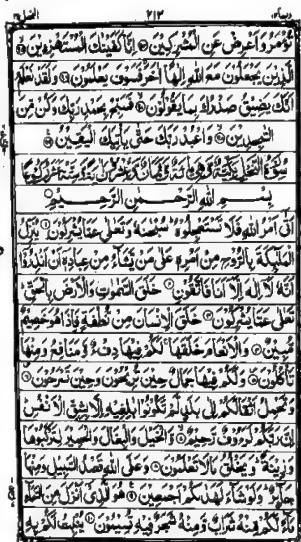 ربما ١٤ ٢١٣ النحل ١٦
تُؤْمَرُ وَاَعْرِضْ عَنِ الْمُشْرِكِيْنَ ۝ اِنَّا كَفَيْنٰكَ الْمُسْتَهْزِءِيْنَ ۝
الَّذِيْنَ يَجْعَلُوْنَ مَعَ اللّٰهِ اِلٰهًا اٰخَرَ فَسَوْفَ يَعْلَمُوْنَ ۝ وَلَقَدْ نَعْلَمُ
اَنَّكَ يَضِيْقُ صَدْرُكَ بِمَا يَقُوْلُوْنَ ۝ فَسَبِّحْ بِحَمْدِ رَبِّكَ وَكُنْ مِّنَ
السّٰجِدِيْنَ ۝ وَاعْبُدْ رَبَّكَ حَتّٰى يَاْتِيَكَ الْيَقِيْنُ ۝
سُوْرَةُ النَّحْلِ مَكِّيَّةٌ وَّهِيَ مِائَةٌ وَّثَمَانٌ وَّعِشْرُوْنَ اٰيَةً وَّسِتَّةَ عَشَرَ رُكُوْعًا
بِسْمِ اللّٰهِ الرَّحْمٰنِ الرَّحِيْمِ ۝
اَتٰى اَمْرُ اللّٰهِ فَلَا تَسْتَعْجِلُوْهُ ؕ سُبْحٰنَهٗ وَتَعٰلٰى عَمَّا يُشْرِكُوْنَ ۝ يُنَزِّلُ
الْمَلٰٓئِكَةَ بِالرُّوْحِ مِنْ اَمْرِهٖ عَلٰى مَنْ يَّشَآءُ مِنْ عِبَادِهٖٓ اَنْ اَنْذِرُوْٓا
اَنَّهٗ لَآ اِلٰهَ اِلَّآ اَنَا فَاتَّقُوْنِ ۝ خَلَقَ السَّمٰوٰتِ وَالْاَرْضَ بِالْحَقِّ ؕ
تَعٰلٰى عَمَّا يُشْرِكُوْنَ ۝ خَلَقَ الْاِنْسَانَ مِنْ نُّطْفَةٍ فَاِذَا هُوَ خَصِيْمٌ
مُّبِيْنٌ ۝ وَالْاَنْعَامَ خَلَقَهَا لَكُمْ فِيْهَا دِفْءٌ وَّمَنَافِعُ وَمِنْهَا
تَاْكُلُوْنَ ۝ وَلَكُمْ فِيْهَا جَمَالٌ حِيْنَ تُرِيْحُوْنَ وَحِيْنَ تَسْرَحُوْنَ ۝
وَتَحْمِلُ اَثْقَالَكُمْ اِلٰى بَلَدٍ لَّمْ تَكُوْنُوْا بٰلِغِيْهِ اِلَّا بِشِقِّ الْاَنْفُسِ
اِنَّ رَبَّكُمْ لَرَءُوْفٌ رَّحِيْمٌ ۝ وَّالْخَيْلَ وَالْبِغَالَ وَالْحَمِيْرَ لِتَرْكَبُوْهَا
وَزِيْنَةً ؕ وَيَخْلُقُ مَا لَا تَعْلَمُوْنَ ۝ وَعَلَى اللّٰهِ قَصْدُ السَّبِيْلِ وَمِنْهَا
جَآئِرٌ ؕ وَلَوْ شَآءَ لَهَدٰىكُمْ اَجْمَعِيْنَ ۝ هُوَ الَّذِيْٓ اَنْزَلَ مِنَ السَّمَآءِ
مَآءً لَّكُمْ مِّنْهُ شَرَابٌ وَّمِنْهُ شَجَرٌ فِيْهِ تُسِيْمُوْنَ ۝ يُنْۢبِتُ لَكُمْ بِهِ